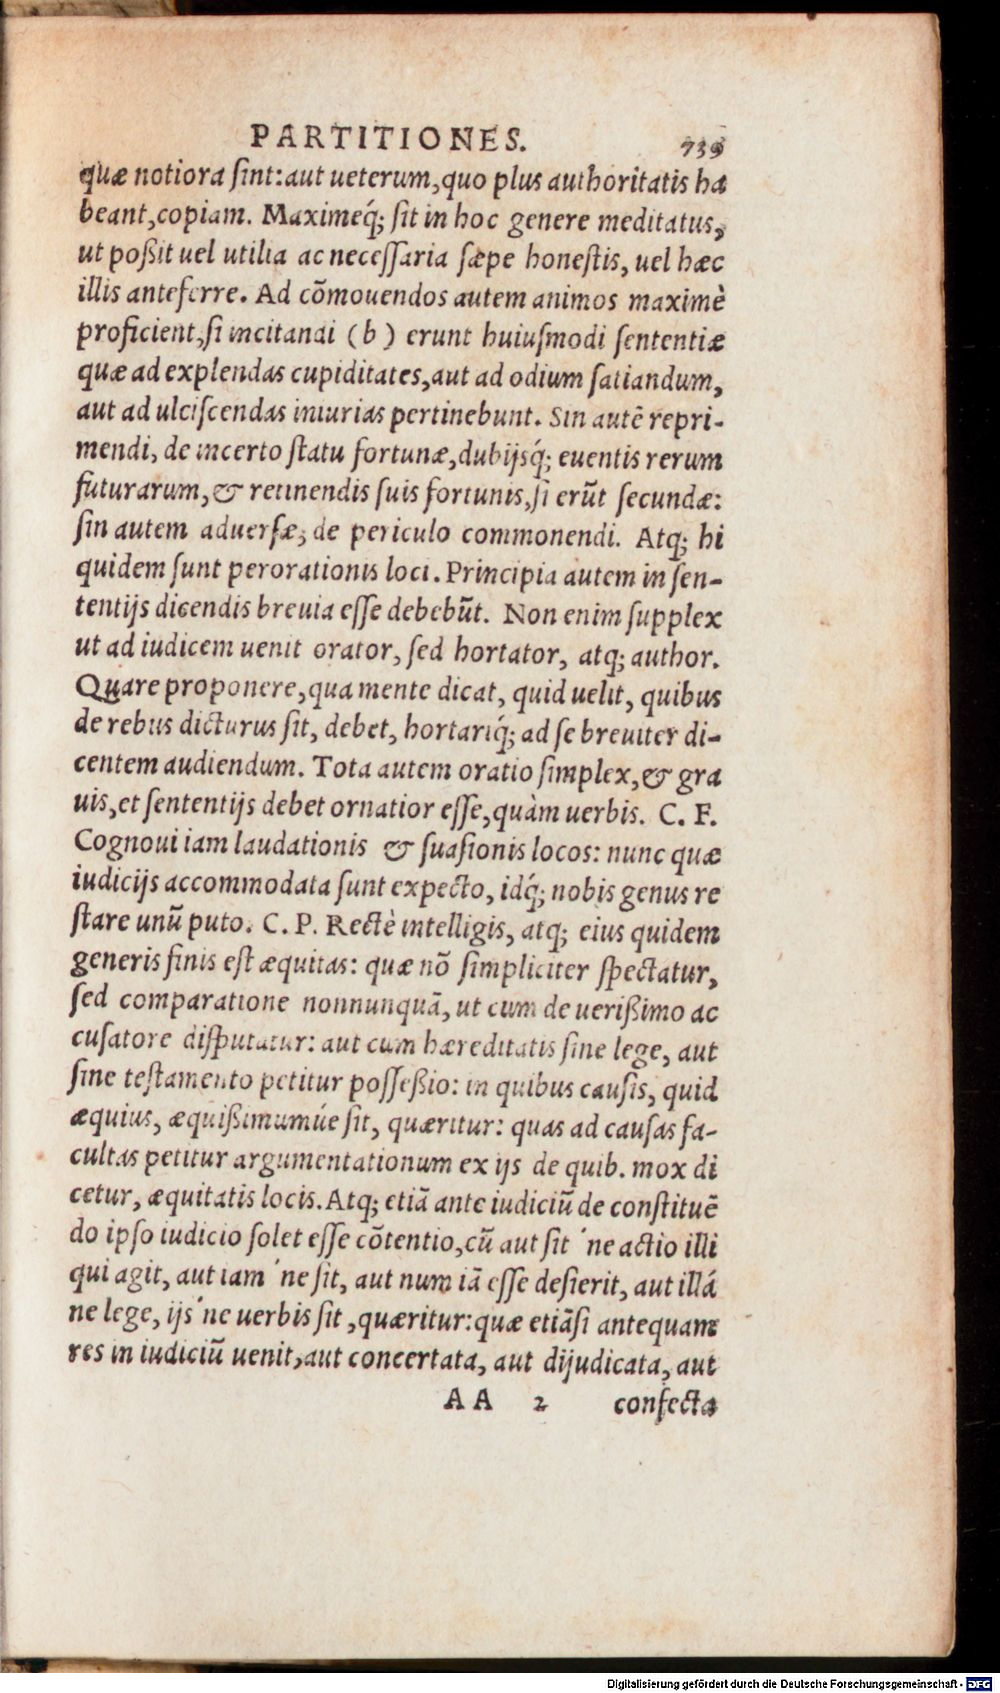 PARTITIONES. 739
quæ notiora ſint: aut ueterum, quo plus authoritatis ha
beant, copiam. Maximeq́; ſit in hoc genere meditatus,
ut poßit uel utilia ac neceſſaria ſæpe honeſtis, uel hæc
illis anteferre. Ad cõmouendos autem animos maximè
proficient, ſi incitandi (b) erunt huiuſmodi ſententiæ
quæ ad explendas cupiditates, aut ad odium ſatiandum,
aut ad ulciſcendas iniurias pertinebunt. Sin autẽ repri-
mendi, de incerto ſtatu fortunæ, dubijsq́; euentis rerum
futurarum, & retinendis ſuis fortunis, ſi erũt ſecundæ:
ſin autem aduerſæ, de periculo commonendi. Atq; hi
quidem ſunt perorationis loci. Principia autem in ſen-
tentijs dicendis breuia eſſe debebũt. Non enim ſupplex
ut ad iudicem uenit orator, ſed hortator, atq; author.
Quare proponere, qua mente dicat, quid uelit, quibus
de rebus dicturus ſit, debet, hortariq́; ad ſe breuiter di-
centem audiendum. Tota autem oratio ſimplex, & gra
uis, et ſententijs debet ornatior eſſe, quàm uerbis. C. F.
Cognoui iam laudationis & ſuaſionis locos: nunc quæ
iudicijs accommodata ſunt expecto, idq́; nobis genus re
ſtare unũ puto. C. P. Rectè intelligis, atq; eius quidem
generis finis eſt æquitas: quæ nõ ſimpliciter ſpectatur,
ſed comparatione nonnunquã, ut cum de uerißimo ac
cuſatore diſputatur: aut cum hæreditatis ſine lege, aut
ſine teſtamento petitur poſſeßio: in quibus cauſis, quid
æquius, æquißimumúe ſit, quæritur: quas ad cauſas fa-
cultas petitur argumentationum ex ijs de quib. mox di
cetur, æquitatis locis. Atq; etiã ante iudiciũ de conſtituẽ
do ipſo iudicio ſolet eſſe cõtentio, cũ aut ſit ´ne actio illi
qui agit, aut iam ´ne ſit, aut num iã eſſe deſierit, aut illá
ne lege, ijs´ne uerbis ſit, quæritur: quæ etiãſi antequam
res in iudiciũ uenit, aut concertata, aut dijudicata, aut
AA 2 confecta
Digitalisierung gefördert durch die Deutsche Forschungsgemeinschaft - DFG